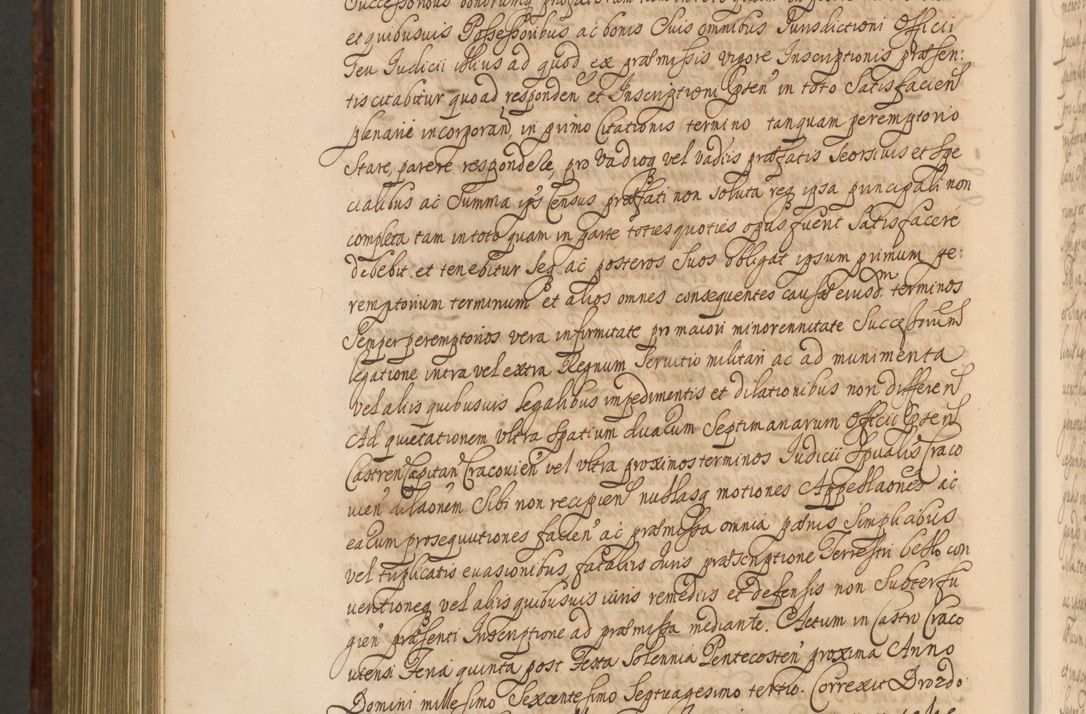 et quibusvis Possessoribus ac bonis Suis omnibus Iurisdictioni Officii
Seu Iudicii illius ad quod ex præmissis vigore Inscriptionis præsen:
tis citabitur quo ad responden et Inscriptioni Pnten in toto Satisfacien
planarie incorporan, in primo Citationis termino tanquam peremptorio
Stare, parere respondere, pro vadioq vel vadiis præfatis Seorsivis et Spe
cialibus ac Summa ips Census præfati non Soluta req ipsa principali non
completa tam in toto quam in parte toties quoties opus fuerit Satisfacere
debebit et tenebitur Seq ac posteros Suos obligat ipsum primum pe:
remptorium terminum et alios omnes consequentes causæ eiusdm terminos
Semper peremptorios vera infirmitate pro maiori minorennitate Successorum
legatione intra vel extra Regnum Servitio militari ac ad munimenta
vel aliis quibusvis legalibus impedimentis et dilationibus non differen
Ad quietationem vltra Spatium duarum Septimanarum Officii Pnten
Castren Capitan Cracovien vel vltra proximos terminos Iudicii Spualis Craco
vien dilaonem Sibi non recipien nullasq motiones Appellaones ac
earum prosequutiones facien ac præmissa omnia pænis Simplicibus
vel triplicatis evasionibus fatalius Iuris præscriptione Terrestri bello con
ventioneq vel aliis quibusvis iuris remediis et defensis non Subterfu
gien præsenti Inscriptione ad præmissa mediante. Actum in Castro Craco
viensi Feria quinta post Festa Solennia Pentecosten proxima Anno
Domini millesimo Sexcentesimo Septuagesimo tertio. Correxit Drozdo